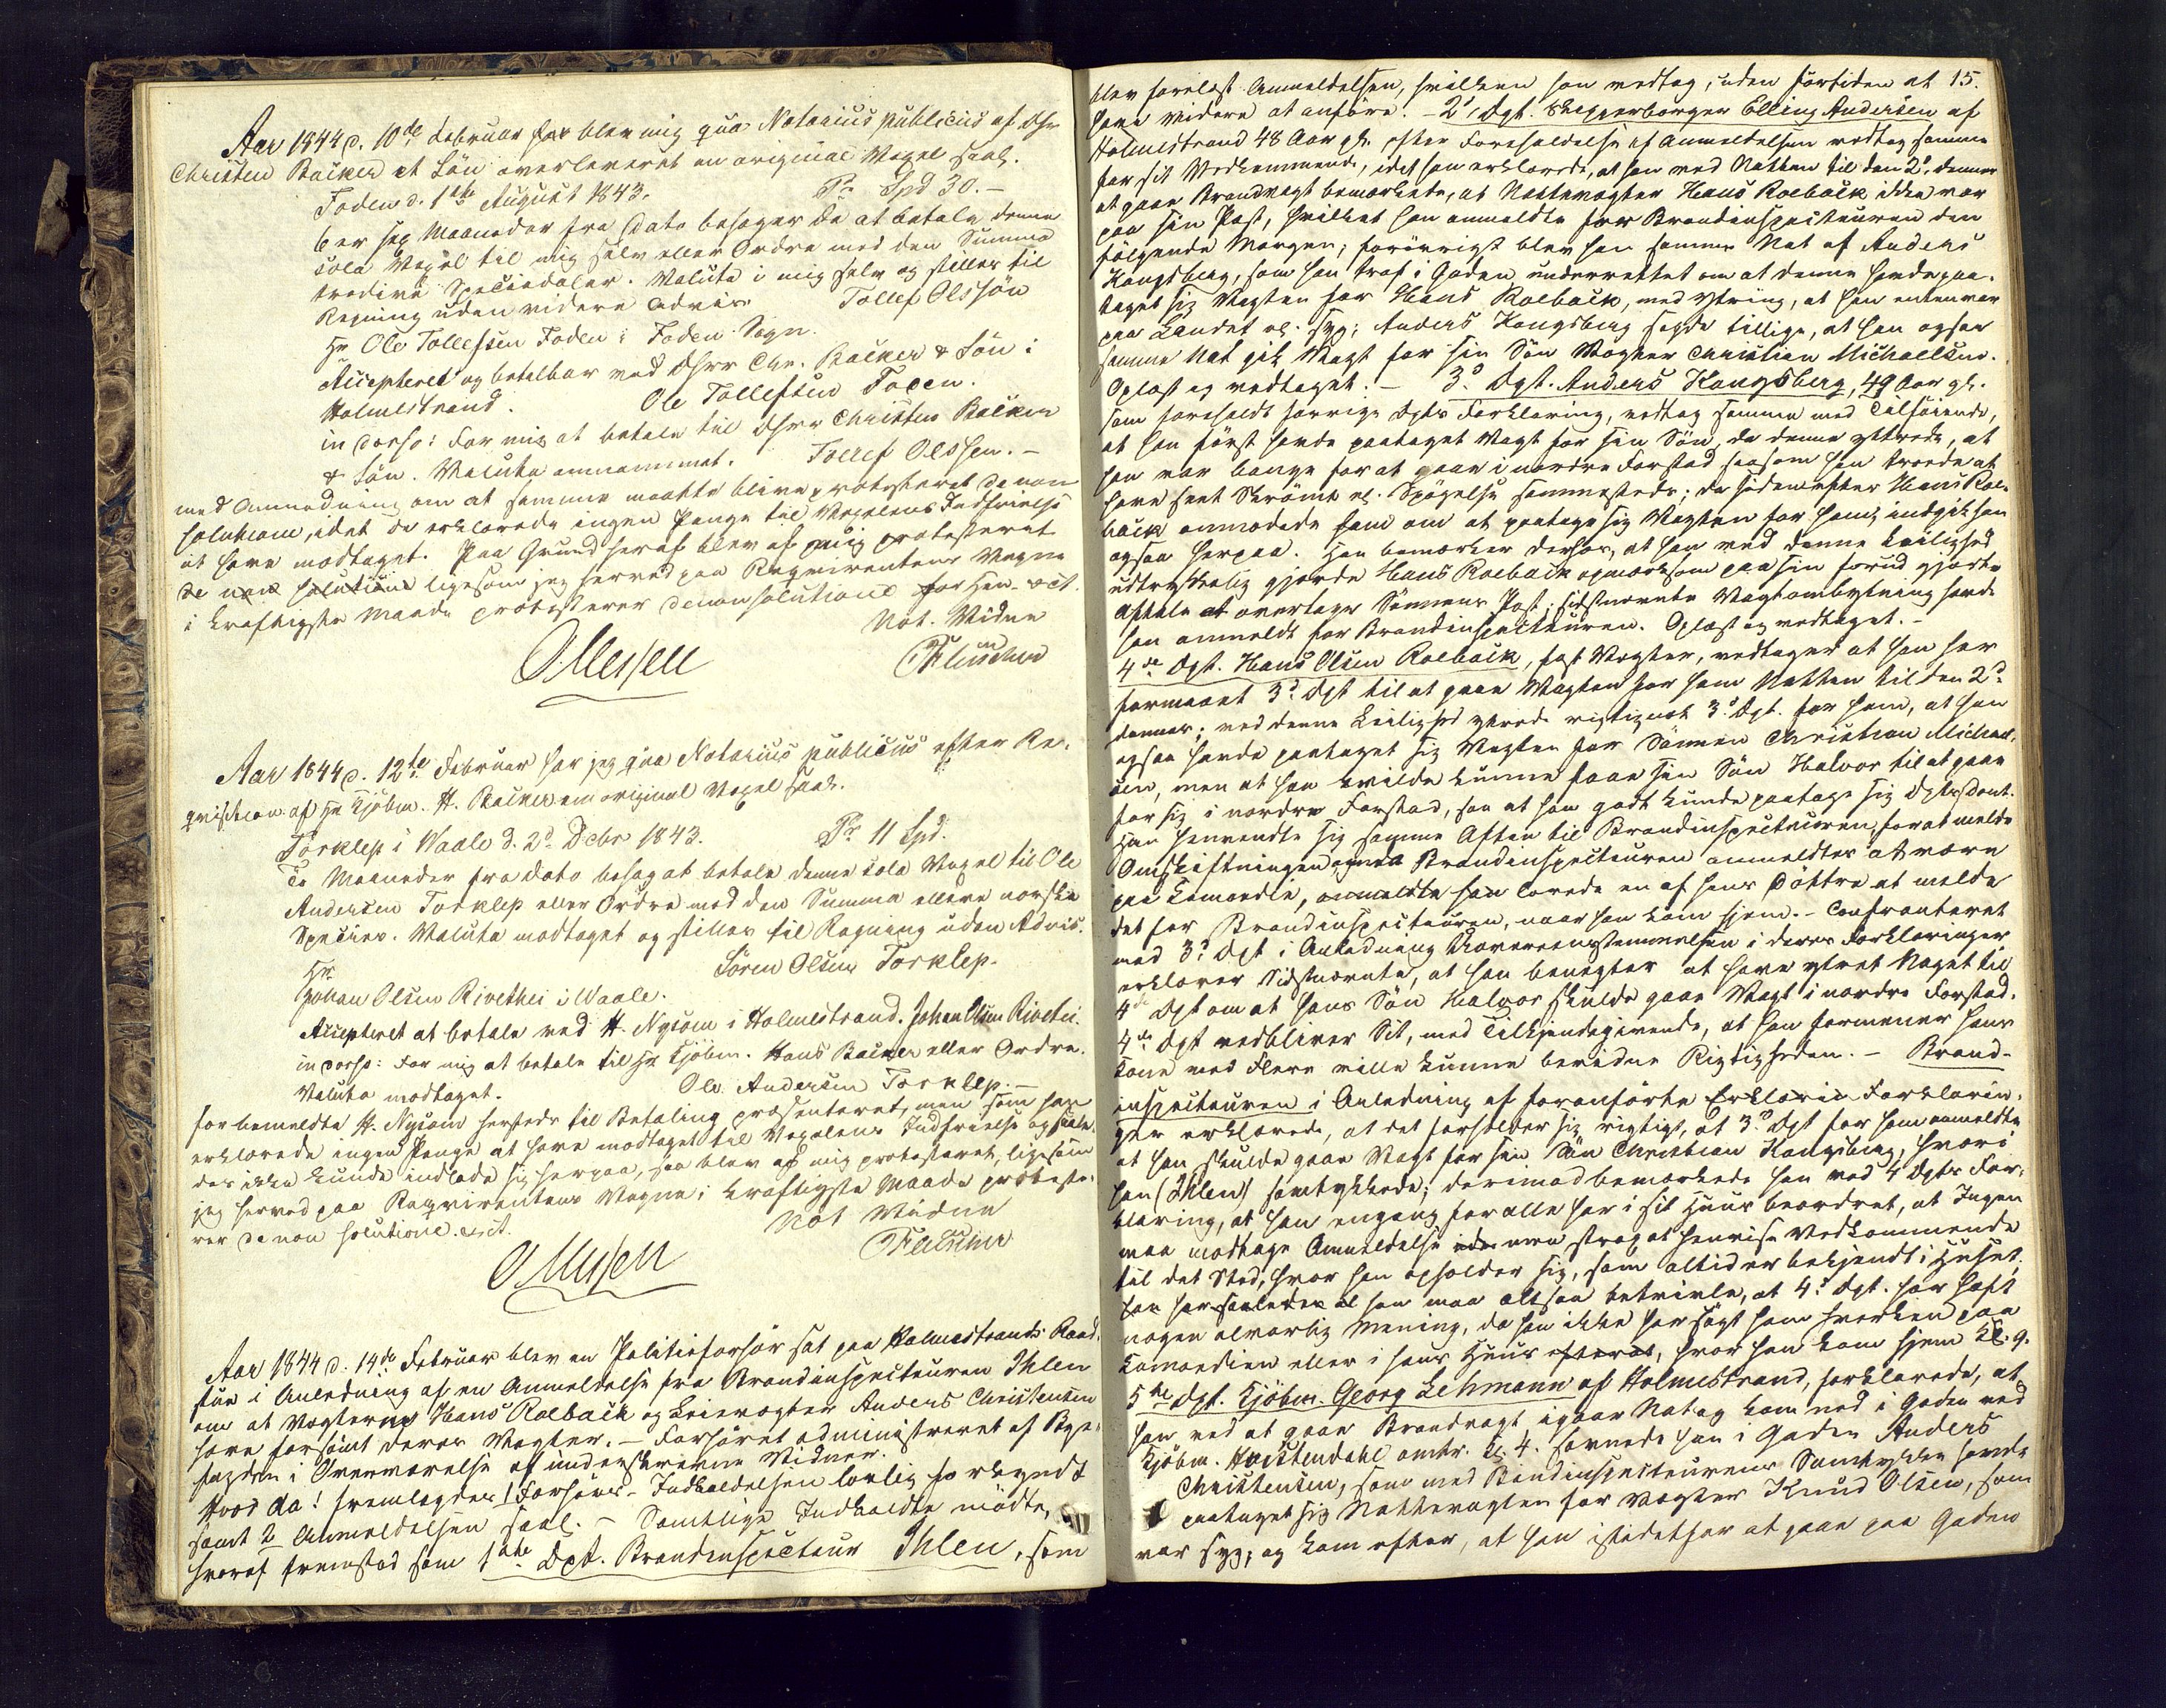 Aar 1844 d. 10de Februar har blev mig qua Notarius publicus af Dhr
Christen Backer et Sön overleveret en original Vexel saal.
Foden d. 1ste August 1843. Pr Spd 30.–
6 er sex Maaneder fra Dato behager De at betale denne
sola Vexel til mig selv eller Ordre med den Summa
tredive Speciedaler. Valuta i mig selv og stilles til
Regning uden videre advis. Tollef Olssön
Hr Ole Tollefsen Foden i Foden Sogn.
Accepteret og betalbar ved Dhrr Chr. Backer & Sön i
Holmestrand. Ole Tollefsen Foden.
in dorso: For mig at betale til Dhrr Christen Backer
& Sön. Valuta annammet. Tollef Olssen.–
med Anmodning om at samme maatte blive protesteret de non
solutione, idet de erklærede ingen Penge til Vexelens Indfrielse
at have modtaget. Paa Grund heraf blev af mig protesteret
de non solutione ligesom jeg herved paa Reqvirentens Vegne
i kraftigste Maade protesterer de non solutione
Not. Vidne
OMessell
Aar 1844 d. 12te Februar har jeg qua Notarius publicus efter Re-
qvisition af Hr Kjöbm. H. Backer en original Vexel saal.
Torklep i Waale d. 2d Decbr 1843. Pr 11 Spd.
To Maaneder fra dato behag at betale denne sola Vexel til Ole
Andersen Torklep eller Ordre med den Summa elleve norske
Species. Valuta modtaget og stilles til Regning uden Advis.
Hr Sören Olsen Torklep.
Johan Olsen Rivethei i Waale.
Accepteret at betale ved H. Nysom i Holmestrand. Johan Olsen Rivetei.
in dorso: For mig at betale til Hr Kjöbm. Hans Backer eller Ordre.
Valuta modtaget. Ole Andersen Torklep.–
for bemeldte H. Nysom herstede til Betaling præsenteret, men som han
erklærede ingen Penge at have modtaget til Vexelens Indfrielse og saale-
des ikke kunde indlade sig herpaa, saa blev af mig protesteret, ligesom
jeg herved paa Reqvirentens Vegne i kraftigste Maade proteste-
rer de non solutione.
Not Vidne
OMessell
Aar 1844 d. 14de Februar blev en Politieforhör sat paa Holmestrands Raad-
stue i Anledning af en Anmeldelse fra Brandinspecteuren Ihlen
om at Vægterne Hans Roeback og Leievægter Anders Christensen
have forsömt deres Vagter.– Forhöret administreret af Bye-
fogden i Overværelse af underskrevne Vidner.
Hvor da! fremlagdes 1 Forhörs-Indkaldelsen lovlig forkyndt
samt 2 Anmeldelsen saal.– Samtlige Indkaldte mödte,
hvoraf fremstod som 1ste Dept. Brandinspecteur Ihlen, som
blev forelæst Anmeldelsen, hvilken han vedtog, uden förtiden at 15.
have videre at anföre.– 2d Dpt. Skipperborger Elling Andersen af
Holmestrand 48 Aar gl. efter Foreholdelse af Anmeldelsen vedtog samme
for sit Vedkommende, idet han erklærede, at han ved Natten til den 2d dennes
at gaae Brandvagt bemærkede, at Nattevægter Hans Roeback ikke var
paa sin Post, hvilket han anmeldte for Brandinspecteuren den
fölgende Morgen; forövrigt blev han samme Nat af Anders
Kongsberg, som han traf i Gaden underrettet om at denne havde paa-
taget sig Vagten for Hans Roeback, med Yttring, at han enten var
paa Landet el. syg; Anders Kongsberg sagde tillige, at han ogsaa
samme Nat gik Vagt for sin Sön Vægter Christian Michaelsen.
Oplæst og vedtaget.– 3d Dpt. Anders Kongsberg, 49 Aar gl.
som foreholdt forrige Dpts Forklaring, vedtog samme med Tilföiende,
at han först havde paataget Vagt for sin Sön, da denne yttrede, at
han var bange for at gaae i nordre Forstad saasom han troede at
have seet Skrömt el. Spögelse sammesteds; da siden efter Hans Roe-
back anmodede ham om at paatage sig Vagten for ham, indgik han
ogsaa herpaa. Han bemærker derhos, at han ved denne Leilighed
udtrykkelig gjorde Hans Roeback opmærksom paa sin forud gjorte
Aftale at overtage Sönnens Post; sidstnævnte Vagtombytning havde
han anmeldt for Brandinspecteuren. Oplæst og vedtaget.–
4de Dpt. Hans Olsen Roeback, fast Vægter, vedtager at han har
formaaet 3d Dpt til at gaae Vagten for ham Natten til den 2d
dennes; ved denne Leilighed ytrede rigtignok 3d Dpt. for ham, at han
ogsaa havde paataget sig Vagten for Sönnen Christian Michael-
sen, men at han vilde kunne faae sin Sön Halvor til at gaae
for sig i nordre Forstad, saa at han godt kunde paatage sig Dptsdont.
Han henvendte sig samme Aften til Brandinspecteuren, for at melde
Omskiftningen, men da Brandinspecteuren anmeldtes at være
paa Comoedie, anmeldte han lovede en af hans Döttre at melde
det for Brandinspecteuren, naar han kom hjem.– Confronteret
med 3d Dpt i Anledning Uoverensstemmelsen i deres Forklaringer
erklærer Sidstnævnte, at han benegter at have ytret Noget til
4de Dpt om at hans Sön Halvor skulde gaae Vagt i nordre Forstad.
4de Dpt vedbliver Sit, med Tilkjendegivende, at han formener hans
Kone med Flere ville kunne bevidne Rigtigheden.– Brand-
inspecteuren i Anledning af foranförte Erklærin Forklarin-
ger erklærede, at det forholder sig rigtigt, at 3d Dpt for ham anmeldte
at han skulde gaae Vagt for sin Sön Christian Kongsberg, hvori
han (Ihlen) samtykkede; derimod bemærkede han ved 4 Dpts For-
klaring, at han engang for alle har i sit Huus beordret, at Ingen
maa modtage Anmeldelse men strax at henvise Vedkommende
til det Sted, hvor han opholder sig, som altid er bekjendt i Huset.
han har saaledes al han maa altsaa betvivle, at 4d Dpt. har havt
nogen alvorlig Mening, da han ikke har sögt ham hverken paa
Comoedien eller i hans Huus efterat, hvor han kom hjem Kl. 9.
5te Dpt. Kjöbm. Georg Lehmann af Holmestrand, forklarede, at
han ved at gaae Brandvagt igaar Nat og kom ned i Gaden ved
Kjöbm. Horttendahl omtr. Kl. 4. savnede han i Gaden Anders
Christensen, som med Brandinspecteurens Samtykke havde
paataget sig Nattevagten for Vægter Knud Olsen, som
var syg; og kom efter, at han istedetfor at gaae paa Gaden